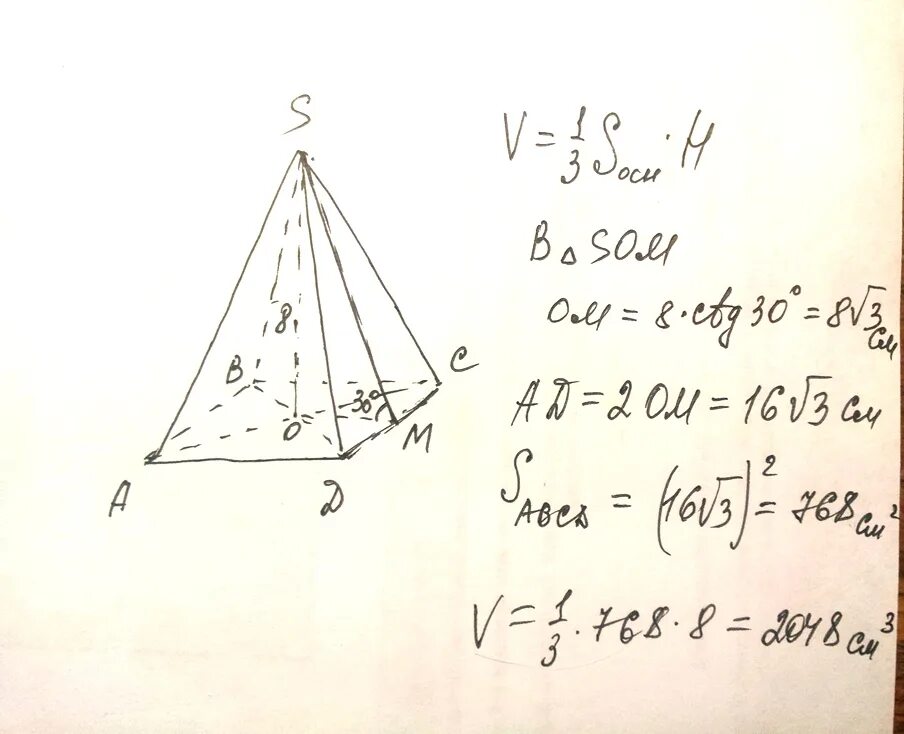 S
B
8
C
30°
O
M
A
D
V = 1/3 Sосн · H
В △ SOM
OM = 8 · ctg 30° = 8√3 см
AD = 2 OM = 16√3 см
S ABCD = (16√3)² = 768 см²
V = 1/3 · 768 · 8 = 2048 см³